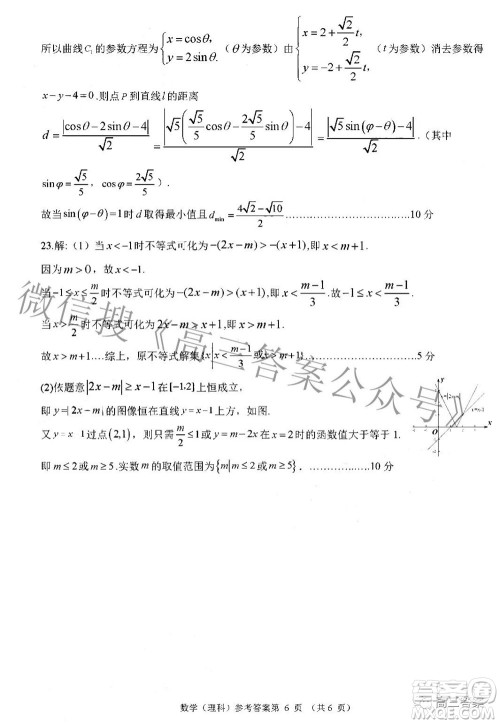 所以曲线C₁的参数方程为{x=cosθ, y=2sinθ.（θ为参数）由{x=2+(√2/2)t, y=-2+(√2/2)t,（t为参数）消去参数得
x-y-4=0.则点P到直线l的距离
d=|cosθ-2sinθ-4|/√2=|√5((√5/5)cosθ-(2√5/5)sinθ)-4|/√2=|√5sin(φ-θ)-4|/√2.（其中
sinφ=√5/5，cosφ=2√5/5）.
故当sin(φ-θ)=1时d取得最小值且d_min=(4√2-√10)/2……………………10 分
23.解:（1）当x<-1时不等式可化为-(2x-m)>-(x+1),即x<m+1.
因为m>0，故x<-1.
当-1≤x≤m/2时不等式可化为-(2x-m)>(x+1),即x<(m-1)/3. 故-1≤x<(m-1)/3.
当x>m/2时不等式可化为2x-m>x+1,即x>m+1.
故x>m+1.…综上，原不等式解集{x|x<(m-1)/3或x>m+1}.……………………5 分
(2)依题意|2x-m|≥x-1在[-1,2]上恒成立，
即y=|2x-m|的图像恒在直线y=x-1上方，如图.
又y=x-1过点(2,1)，则只需m/2≤-1或y=m-2x在x=2时的函数值大于等于1.
即m≤2或m≥5.实数m的取值范围为{m|m≤2或m≥5}.……………10 分
y
O
x
微信搜《高三答案公众号》
数学（理科）参考答案第 6 页 （共 6 页）
高三答案
MXQE.COM